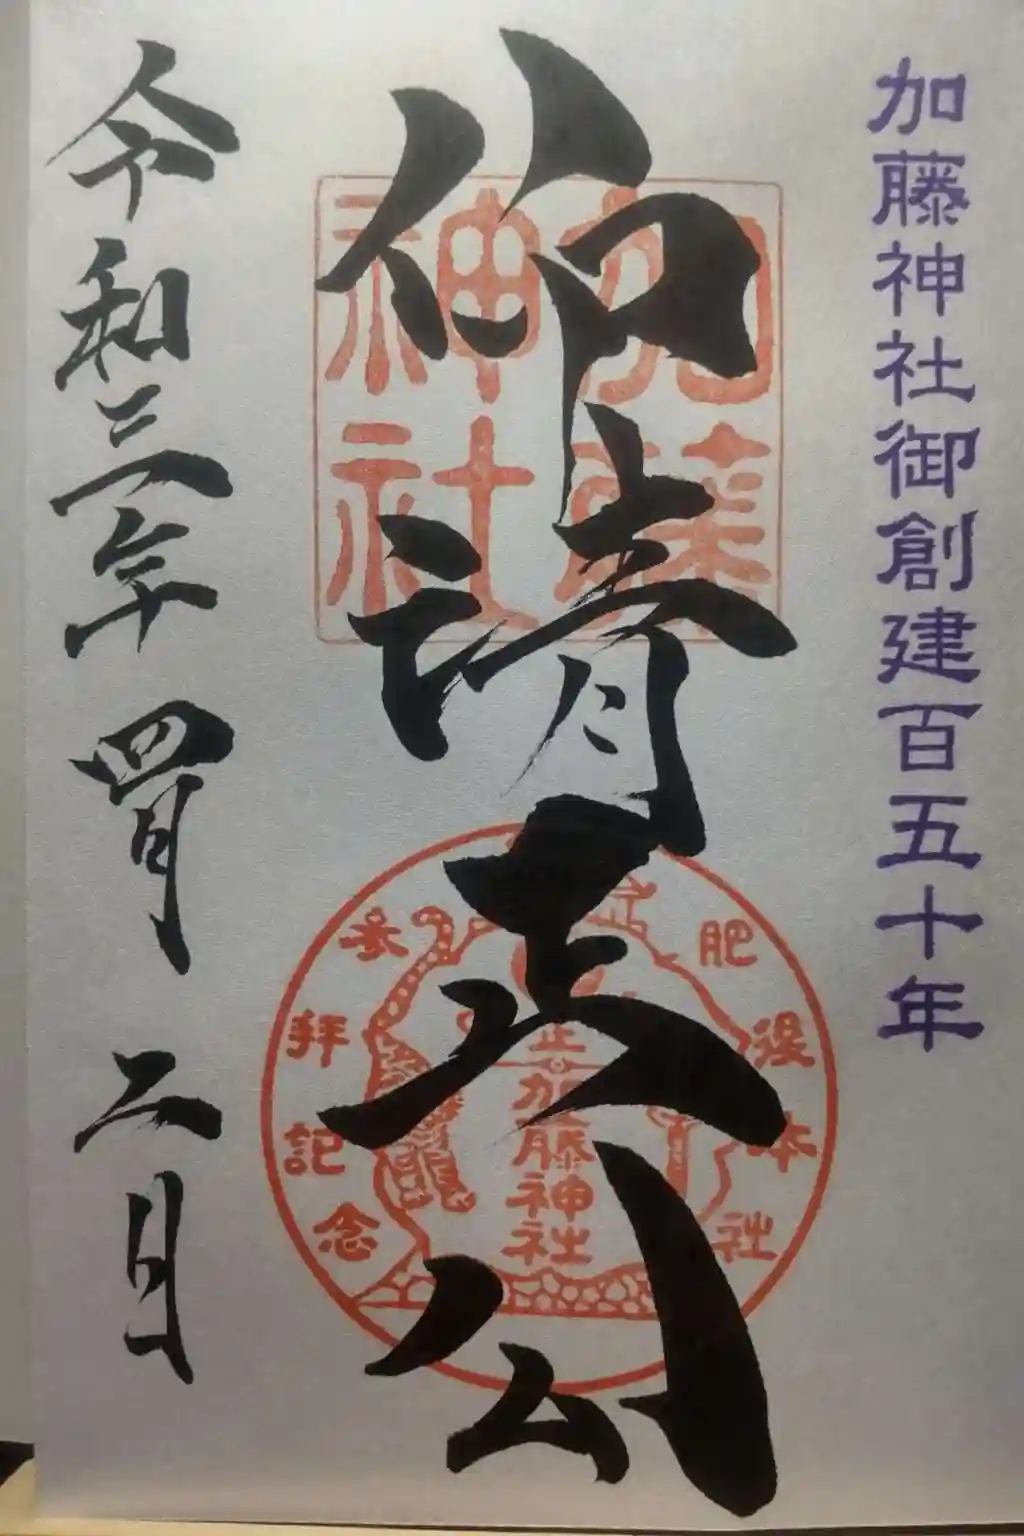 加藤神社御創建百五十年
加藤
神社
仰清正公
肥後本社
参拝記念
加藤
神社
令和三年四月二日